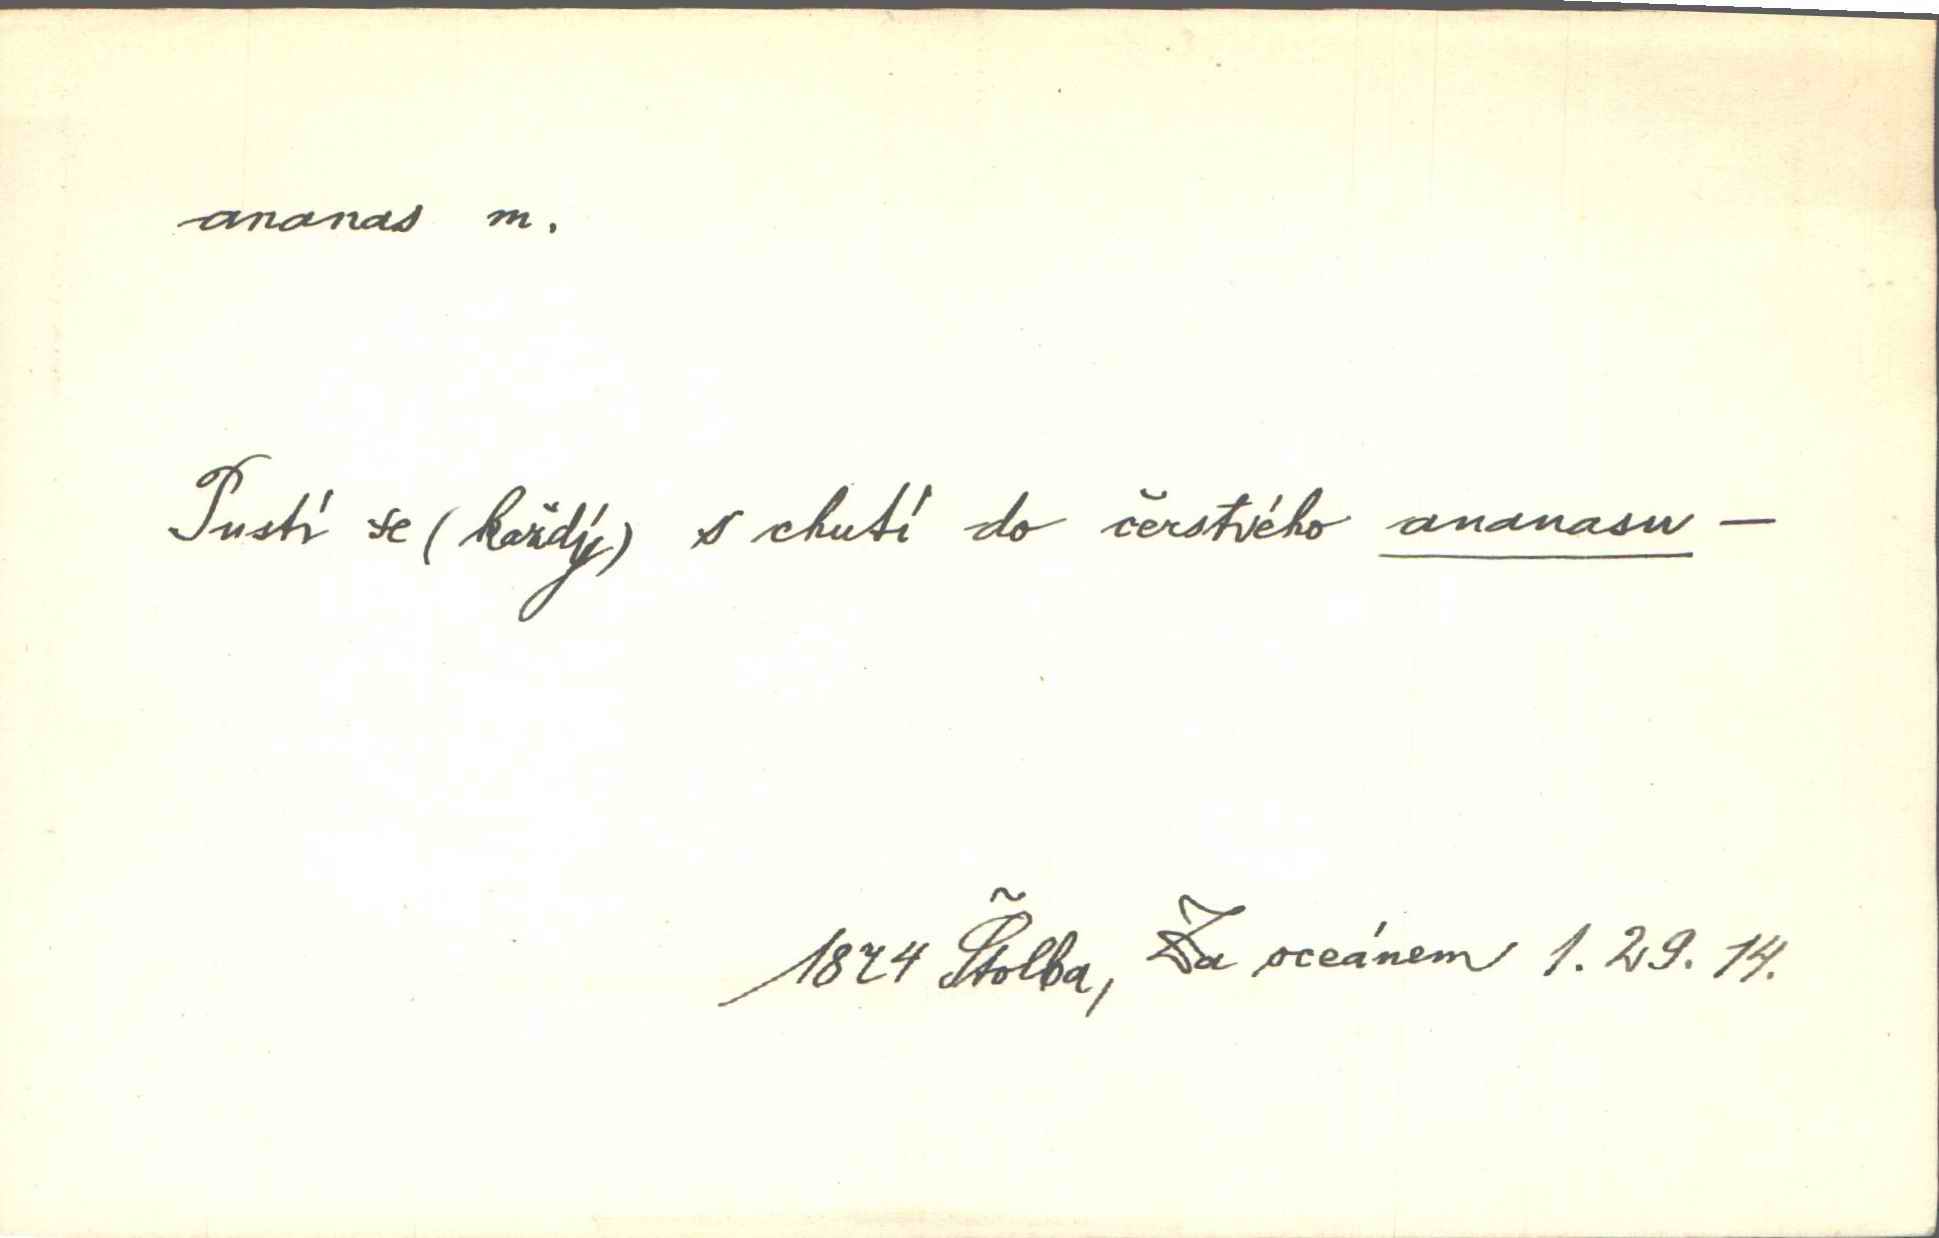 ananas m.
Pustí se (každý) s chutí do čerstvého ananasu —
1874 Štolba, Za oceánem 1. 29. 14.